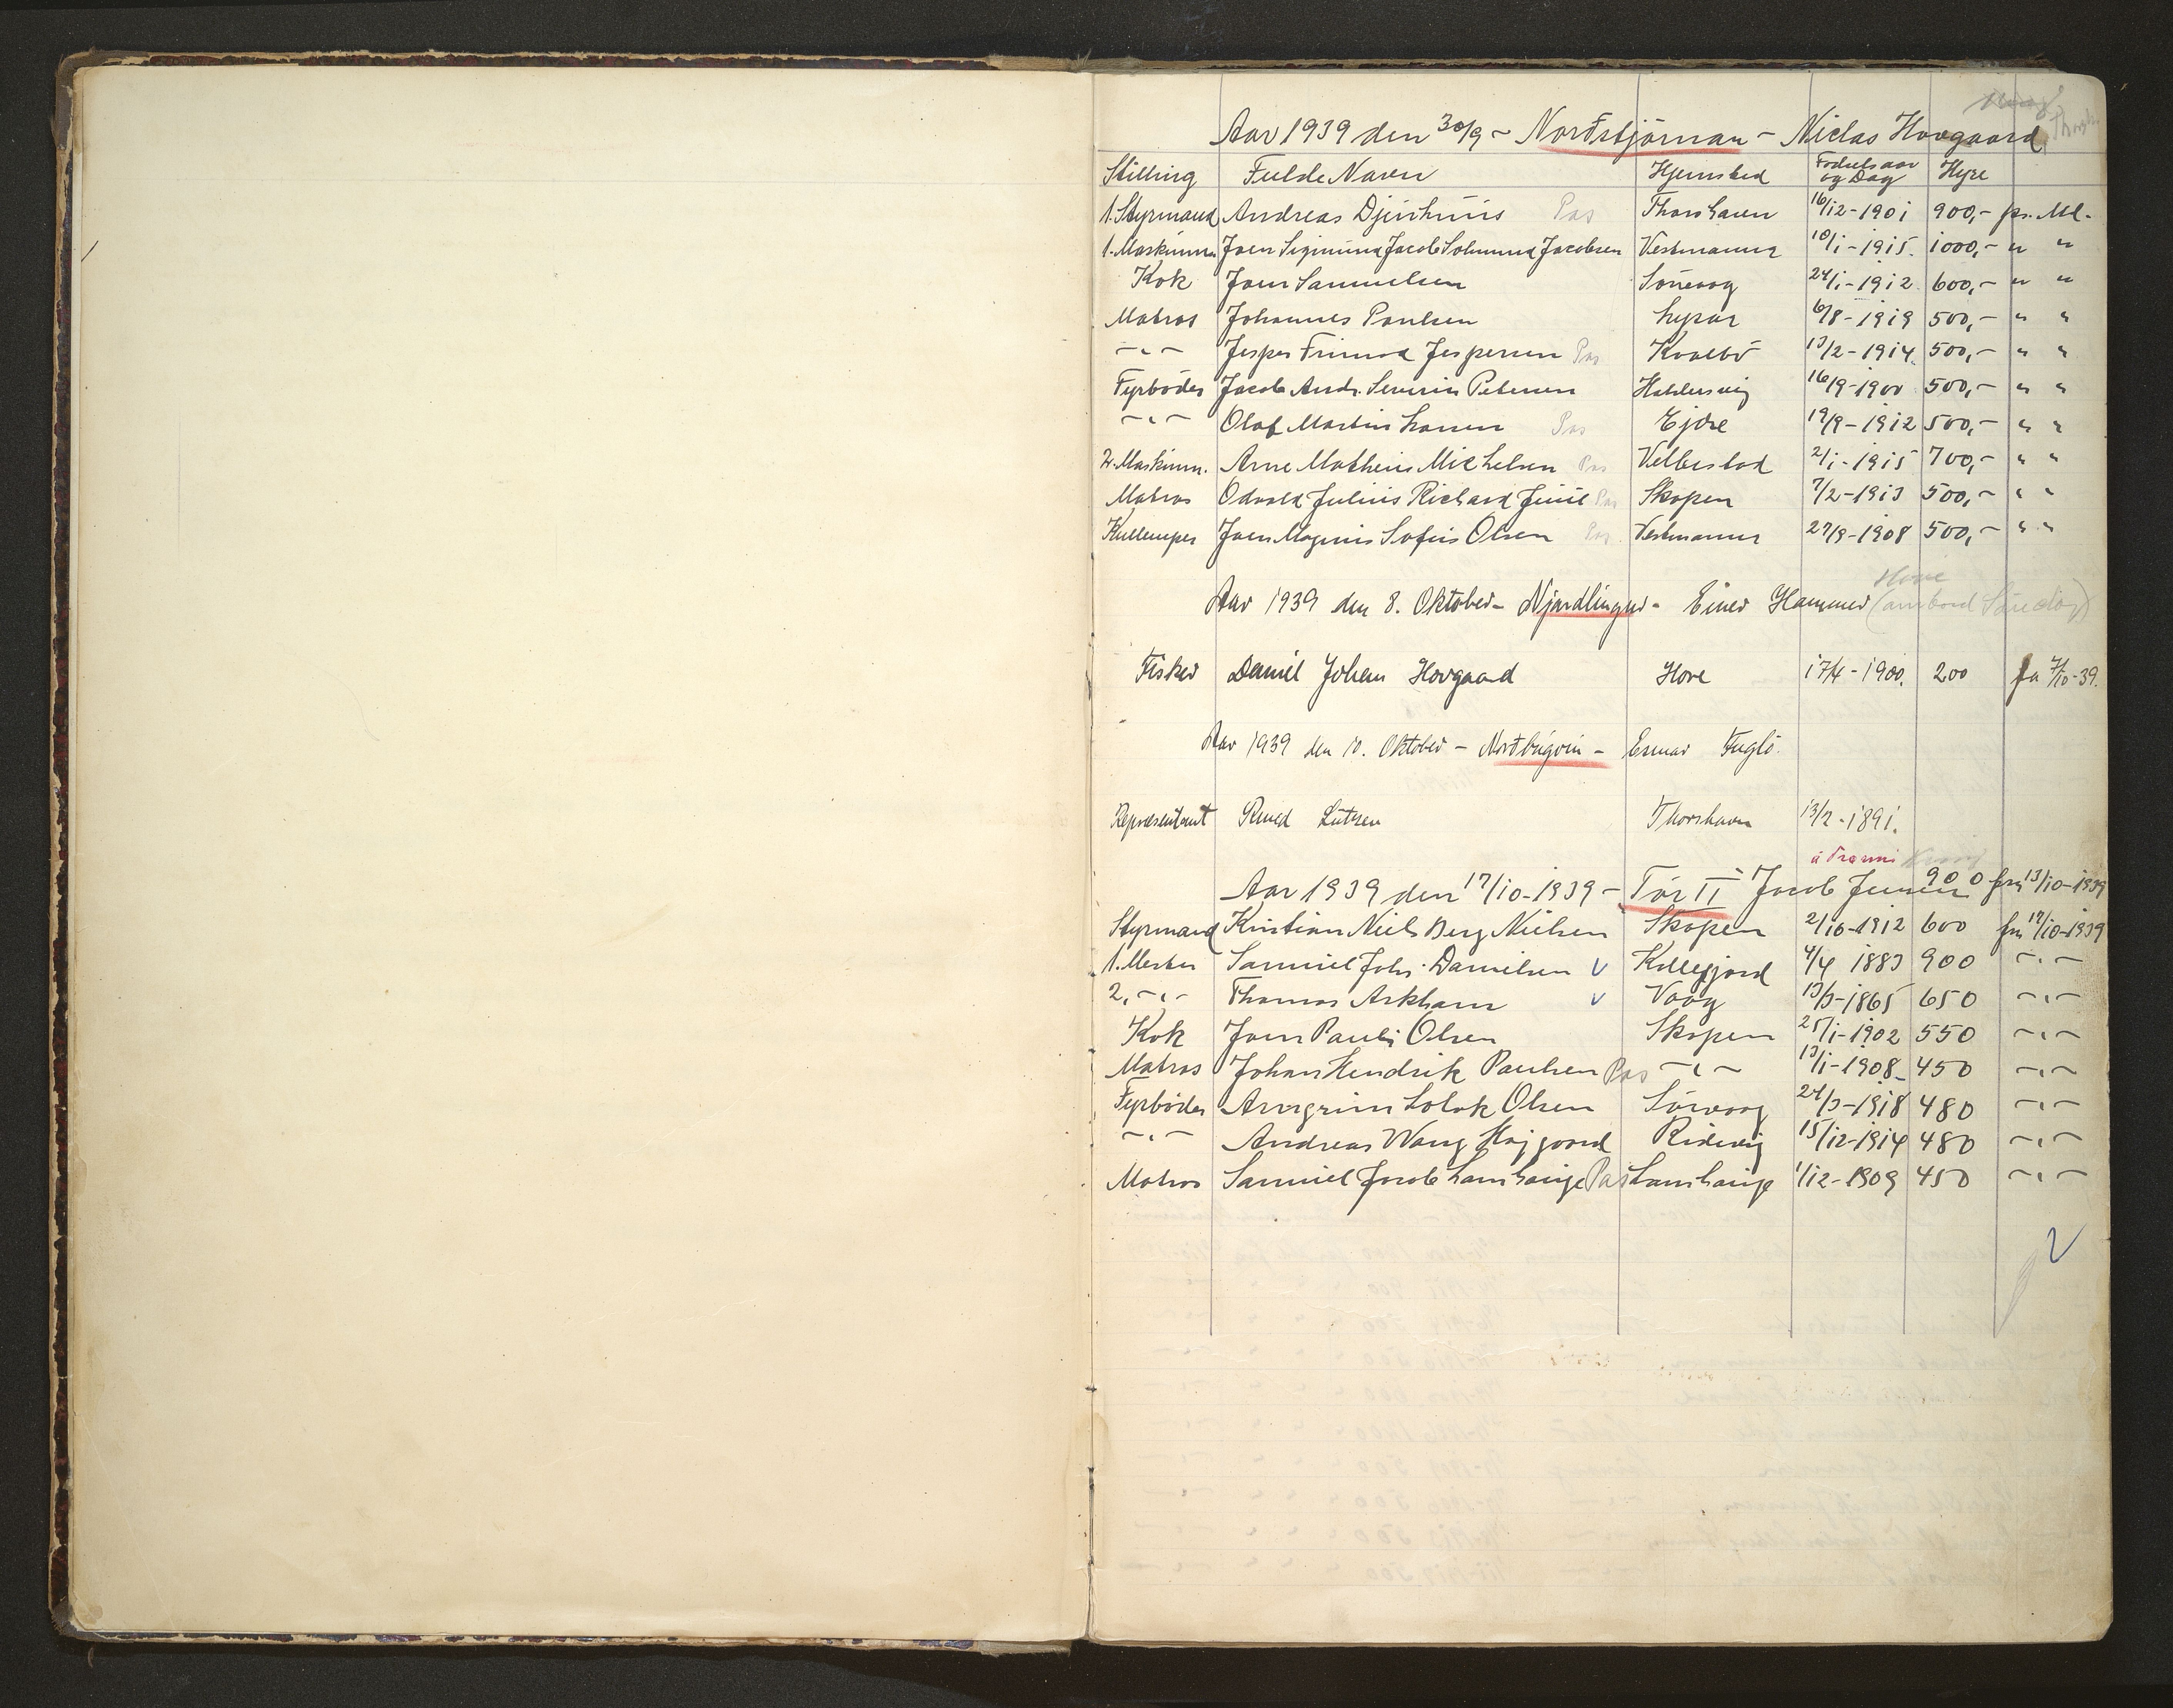 Aar 1939 den 30/9 - Norðstjørnan - Niclas Hovgaard
Stilling Fulde Navn Hjemsted Fødselsaar og Dag Hyre
1. Styrmand Andreas Djurhuus Pas Thorshavn 16/12-1901 900,- pr. Md.
1. Maskinm. Joen Sigmund Jacob Solmund Jacobsen Vestmanna 10/1-1915. 1000,- " "
Kok Joen Samuelsen Sörvaag 24/1-1912 600,- " "
Matros Johannes Poulsen 6/8-1919 500,- " "
-"- Jesper Frimod Jespersen Pas Kvalbö 13/2-1914 500,- " "
Fyrböder Jacob Andr. Severin Petersen Haldersvig 16/9-1900 500,- " "
-"- Olaf Martin Hansen Pas Ejde 19/9-1912 500,- " "
2. Maskinm. Arne Matheus Michelsen Pas Velbestad 2/1-1915 700,- " "
Matros Odvald Julius Richard Juul Pas Skopen 7/2-1913 500,- " "
Kullemper Joen Magnus Sofus Olsen Pas Vestmanna 27/9-1908 500,- " "
Hove
Aar 1939 den 8. Oktober - Njardlingur - Einer Hammer (ombord
Fisker Daniel Johan Hovgaard Hove 17/4-1900. 200 fra 7/10-39.
Aar 1939 den 10. Oktober - Norðbúgvin - Esmar Fuglö.
Repræsentant Lützen Thorshavn 13/2-1891.
Aar 1939 den 17/10-1939 - Tór II Jacob Jensen 900 fra 13/10-1939
Styrmand Kristian Niels Berg Nielsen Skopen 2/10-1912 600 fra 17/10-1939
1. Mester Samuel Johs. Danielsen V Kollefjord 4/4 1883 900 -"-
2. -"- Thomas Arkham V Vaag 13/3-1865 650 -"-
Kok Joen Pauli Olsen Skopen 25/1-1902 550 -"-
Matros Johan Hendrik Paulsen Pas -"- 13/1-1908 450 -"-
Fyrböder Arngrim Lolok Olsen Sörvaag 24/3-1918 480 -"-
-"- Andreas Wang Højgaard Ridevig 15/12-1914 480 -"-
Matros Samuel Jacob Lamhauge Pas Lamhauge 1/12-1909 450 -"-